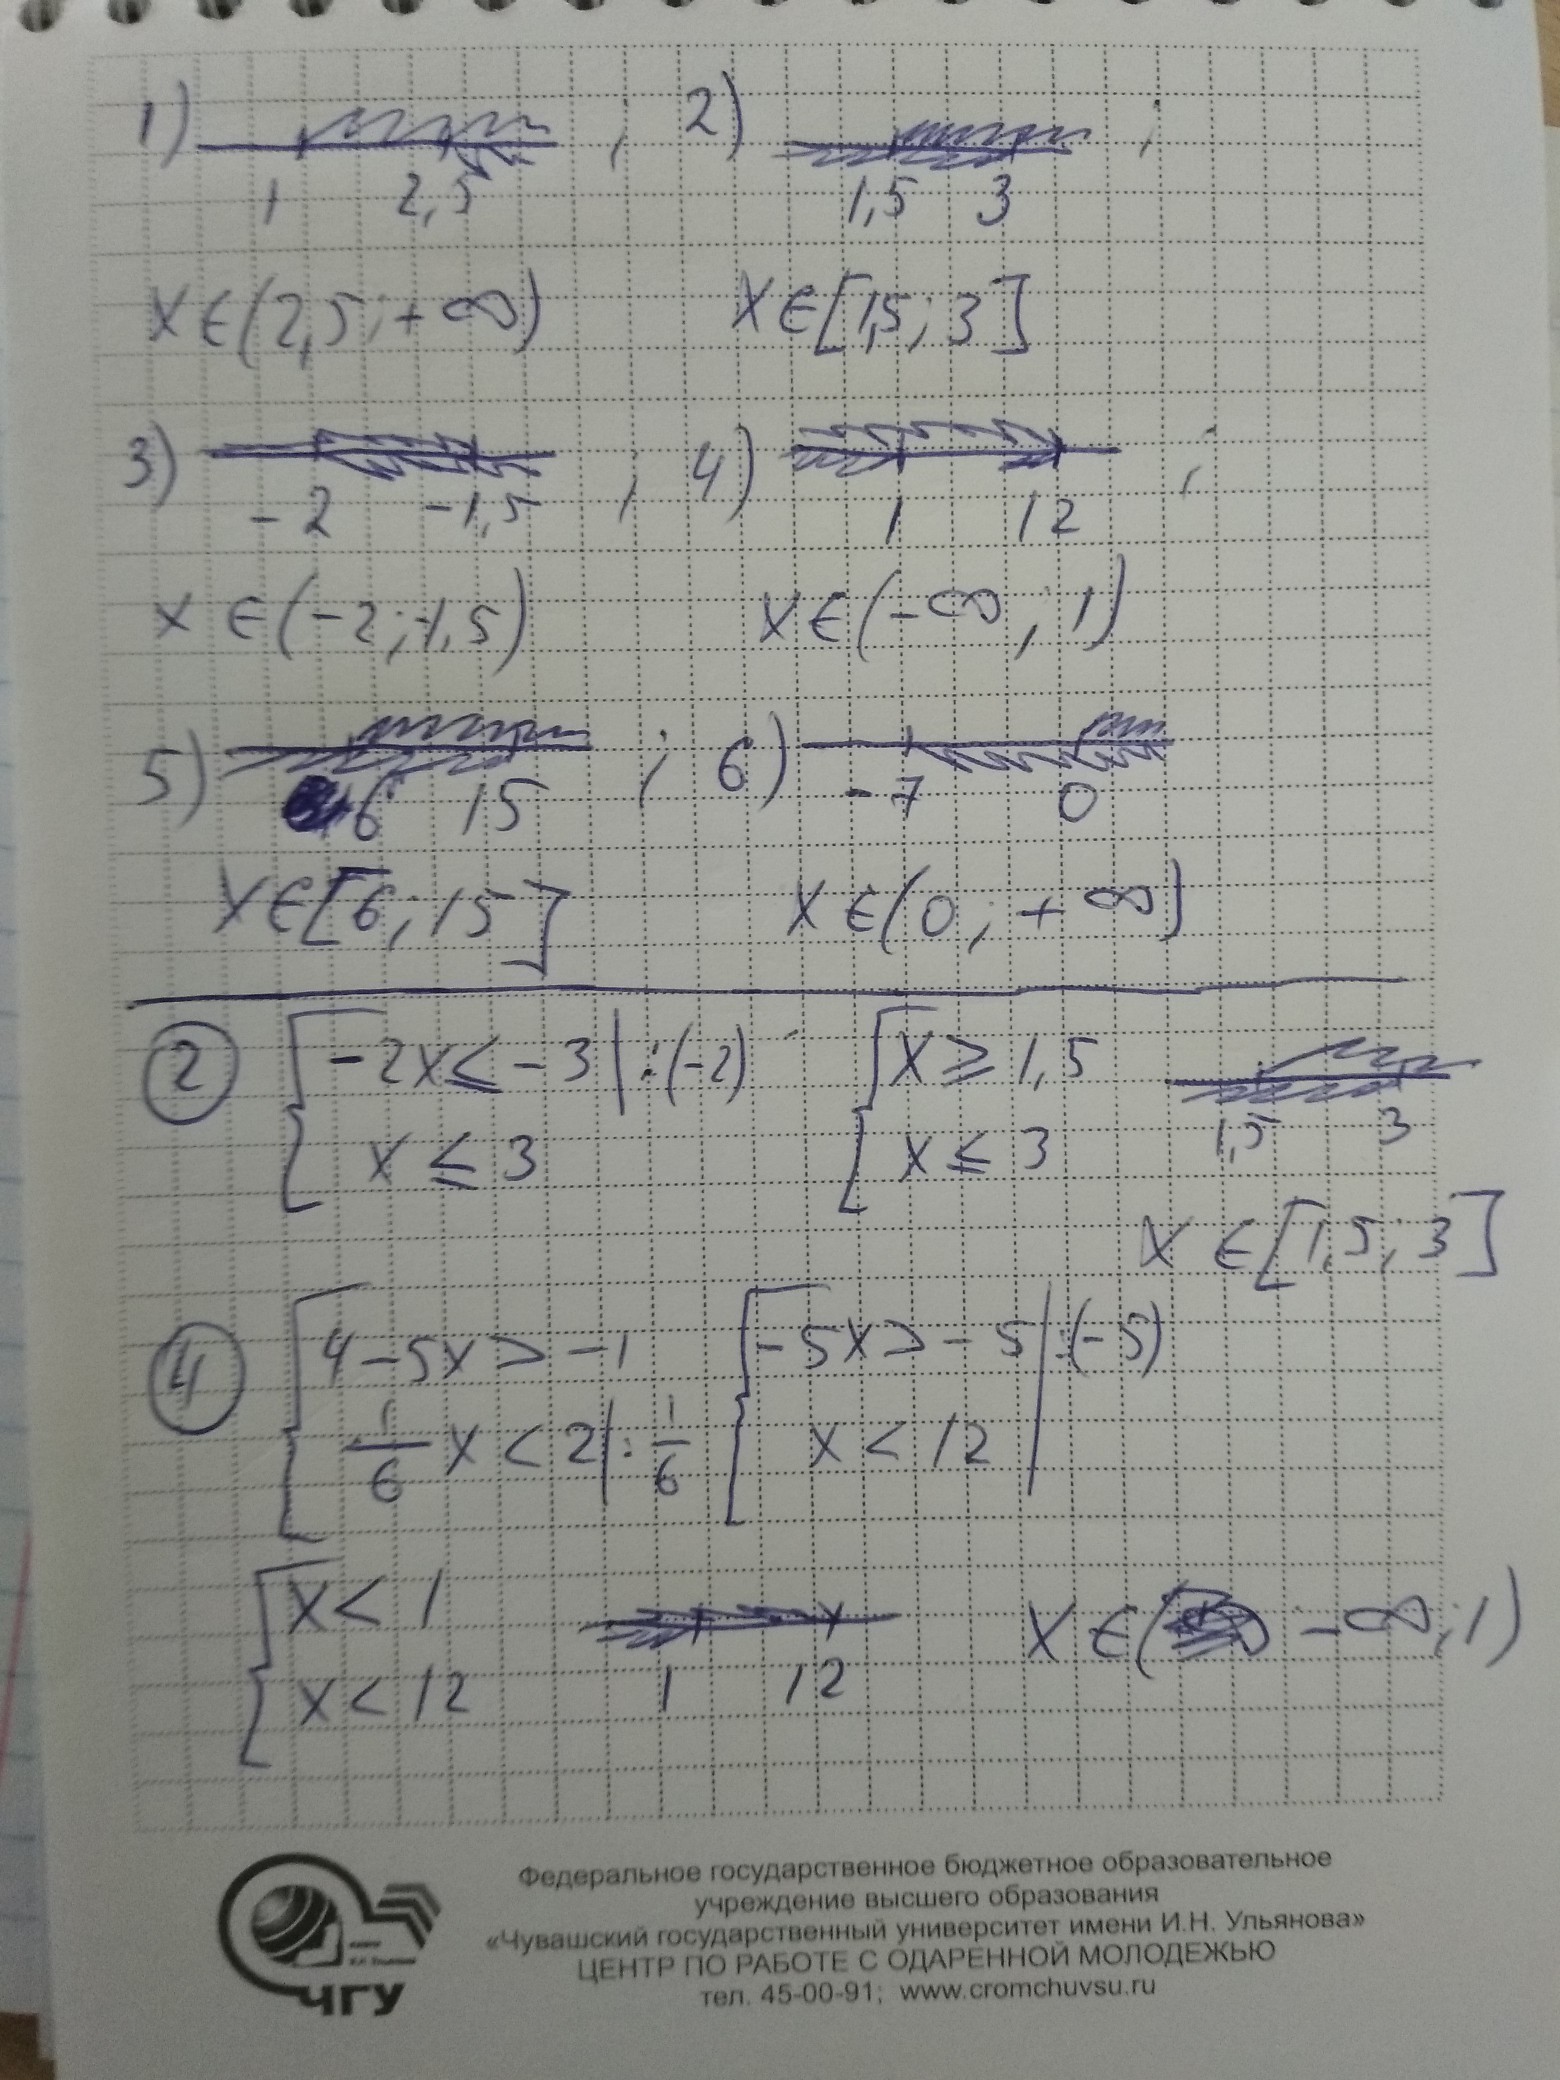 1) ; 2) ;
1 2,5 1,5 3
x ∈ (2,5; +∞) x ∈ [1,5; 3]
3) ; 4) ;
-2 -1,5 1 12
x ∈ (-2; -1,5) x ∈ (-∞; 1)
5) ; 6)
6 15 -7 0
x ∈ [6; 15] x ∈ (0; +∞)
2 [ -2x ≤ -3 | :(-2) [ x ≥ 1,5
x ≤ 3 x ≤ 3 1,5 3
x ∈ [1,5; 3]
4 [ 4 - 5x > -1 [ -5x > -5 | :(-5)
1/6 x < 2 | : 1/6 x < 12
[ x < 1 x ∈ ( -∞; 1)
x < 12 1 12
Федеральное государственное бюджетное образовательное
учреждение высшего образования
«Чувашский государственный университет имени И.Н. Ульянова»
ЦЕНТР ПО РАБОТЕ С ОДАРЕННОЙ МОЛОДЕЖЬЮ
тел. 45-00-91; www.cromchuvsu.ru
ЧГУ